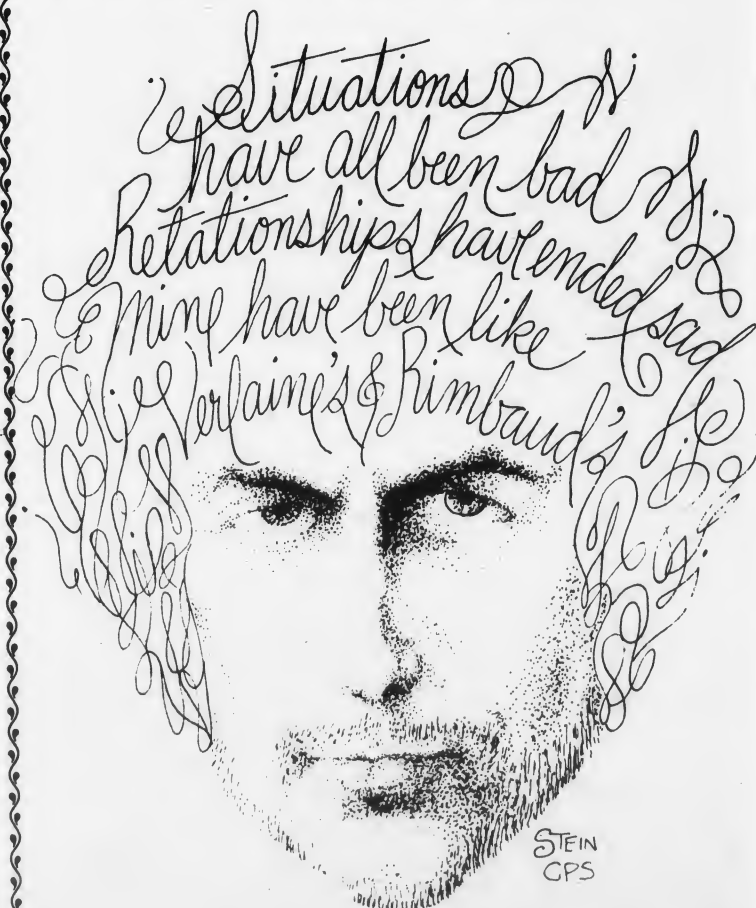 Situations
have all been bad
Relationships have ended sad
Mine have been like
Verlaine's & Rimbaud's
STEIN
CPS